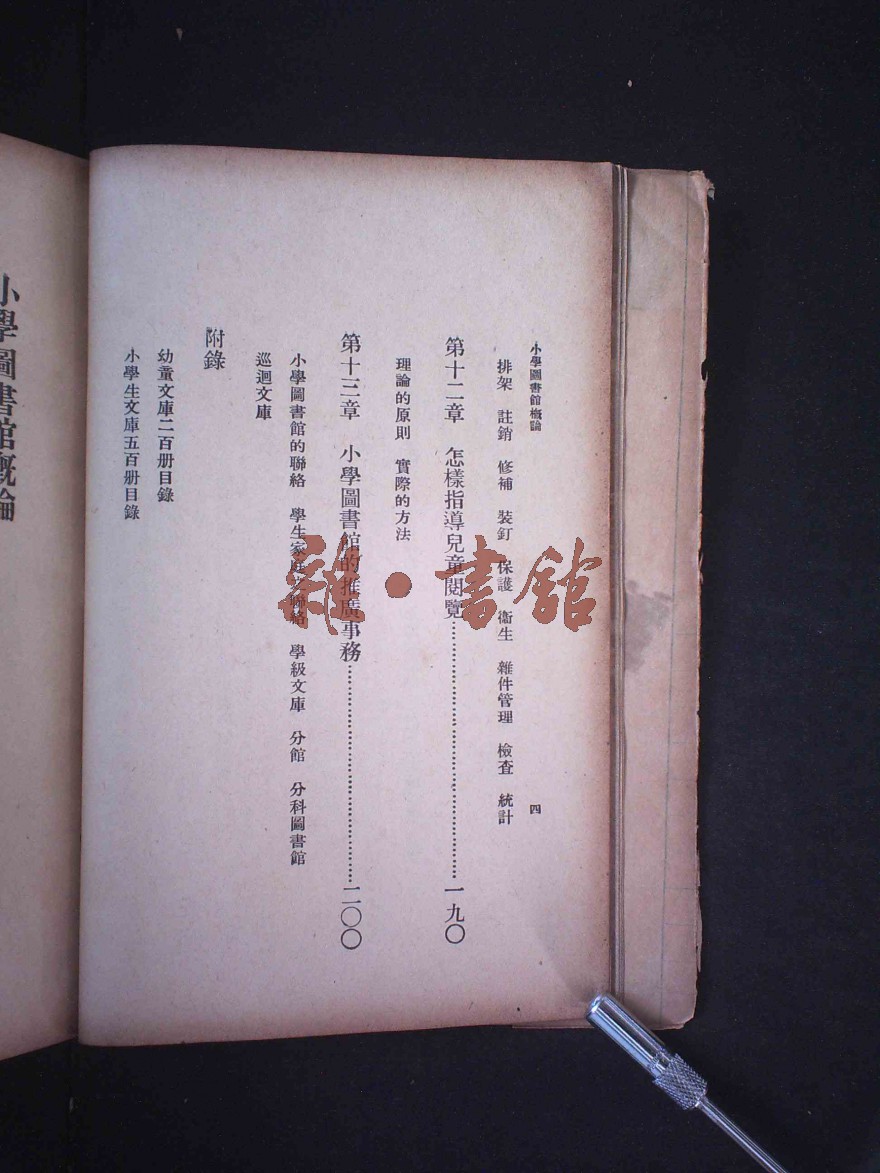 小學圖書館概論 四
排架 註銷 修補 裝訂 保護 衞生 雜件管理 檢查 統計
第十二章 怎樣指導兒童閱覽 一九〇
理論的原則 實際的方法
第十三章 小學圖書館的推廣事務 二〇〇
小學圖書館的聯絡 學生家庭的聯絡 學級文庫 分館 分科圖書館
巡迴文庫
附錄
幼童文庫二百册目錄
小學生文庫五百册目錄
小學圖書館概論
雜·書館